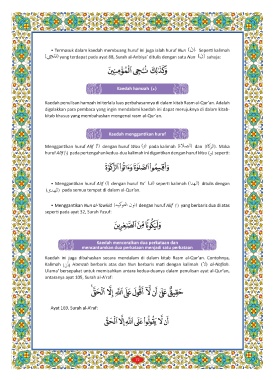 • Termasuk dalam kaedah membuang huruf ini juga ialah huruf Nun (ن). Seperti kalimah
yang terdapat pada ayat 88, Surah al-Anbiya' ditulis dengan satu Nun sahaja:
وَكَذَٰلِكَ نُـۨجِى ٱلْمُؤْمِنِينَ
Kaedah hamzah (ء)
Kaedah penulisan hamzah ini terlalu luas perbahasannya di dalam kitab Rasm al-Qur'an. Adalah
digalakkan para pembaca yang ingin mendalami kaedah ini dapat merujuknya di dalam kitab-
kitab khusus yang membahaskan mengenai rasm al-Qur'an.
Kaedah menggantikan huruf
Menggantikan huruf Alif (ا) dengan huruf Wau (و) pada kalimah (الصلاة) dan (الزكاة). Maka
huruf Alif (ا) pada pertengahan kedua-dua kalimah ini digantikan dengan huruf Wau (و) seperti:
وَأَقِيمُوا۟ ٱلصَّلَوٰةَ وَءَاتُوا۟ ٱلزَّكَوٰةَ
• Menggantikan huruf Alif (ا) dengan huruf Ya' seperti kalimah ditulis dengan
pada semua tempat di dalam al-Qur'an.
• Menggantikan Nun al-Taukid dengan huruf Alif (ا) yang berbaris dua di atas
seperti pada ayat 32, Surah Yusuf:
وَلَيَكُونًا مِّنَ ٱلصَّـٰغِرِينَ
Kaedah mencantumkan dua perkataan menjadi satu perkataan
Kaedah ini juga dibahaskan secara mendalam di dalam kitab Rasm al-Qur'an. Contohnya,
kalimah (أن) Hamzah berbaris atas dan Nun berbaris mati dengan kalimah (لا) al-Nafiah.
Ulama' bersepakat untuk memisahkan antara kedua-duanya dalam penulisan ayat al-Qur'an,
antaranya ayat 105, Surah al-A'raf:
حَقِيقٌ عَلَىٰٓ أَن لَّآ أَقُولَ عَلَى ٱللَّهِ إِلَّا ٱلْحَقَّ
Ayat 169, Surah al-A'raf:
أَن لَّا يَقُولُوا۟ عَلَى ٱللَّهِ إِلَّا ٱلْحَقَّ